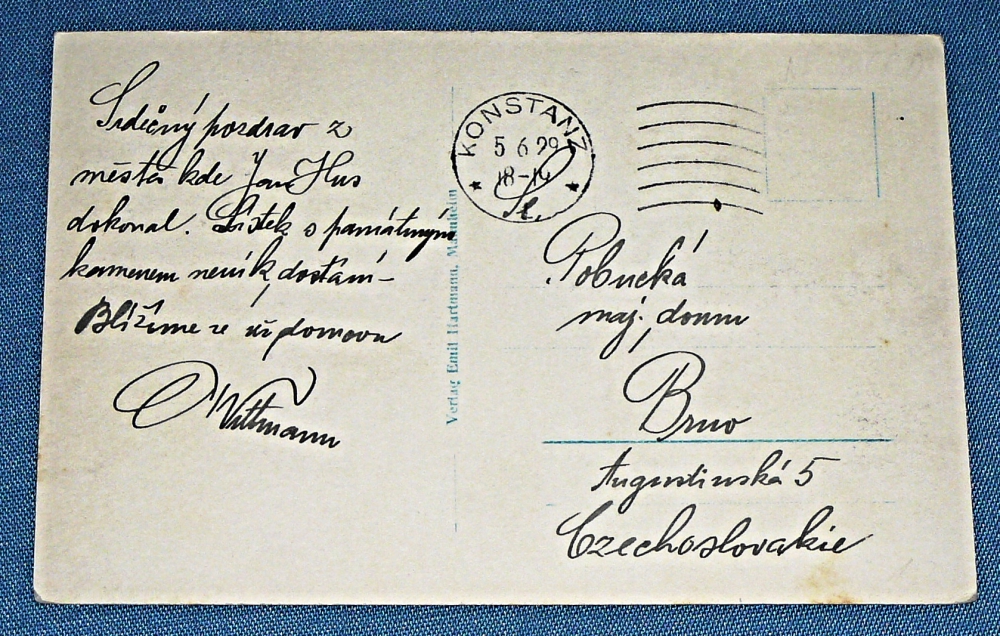 Srdečný pozdrav z
města kde Jan Hus
dokonal. Lístek s památným
kamenem není k dostání –
Blížíme se už domovu
Wittmann
Verlag Emil Hartmann, Mannheim
KONSTANZ
5 6 29
18-19
Sl.
Pobucká
maj. domu
Brno
Augustinská 5
Czechoslovakie